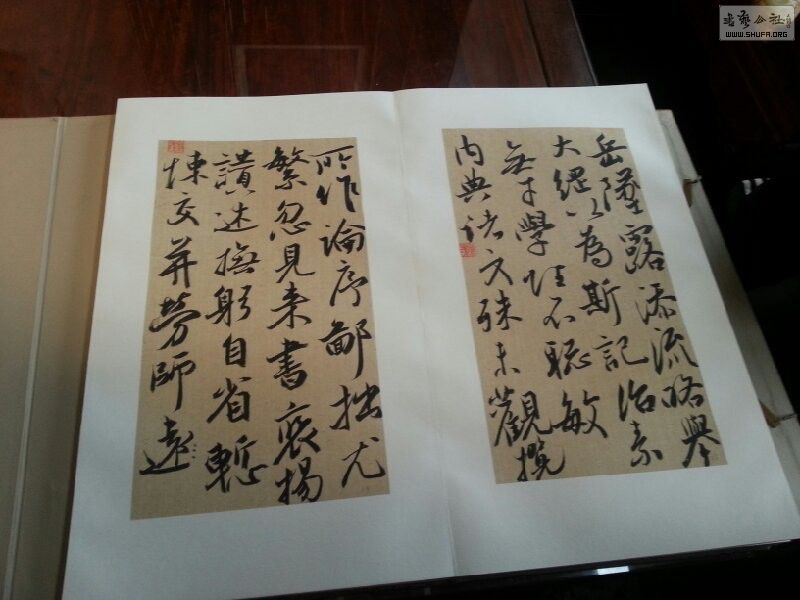 岳墜露添流略舉
大綱以為斯記治素
無才學性不聰敏
內典諸文殊未觀攬
所作論序鄙拙尤
繁忽見來書褒揚
讃述撫躬自省慙
悚交并勞師遠
書藝公社
WWW.SHUFA.ORG